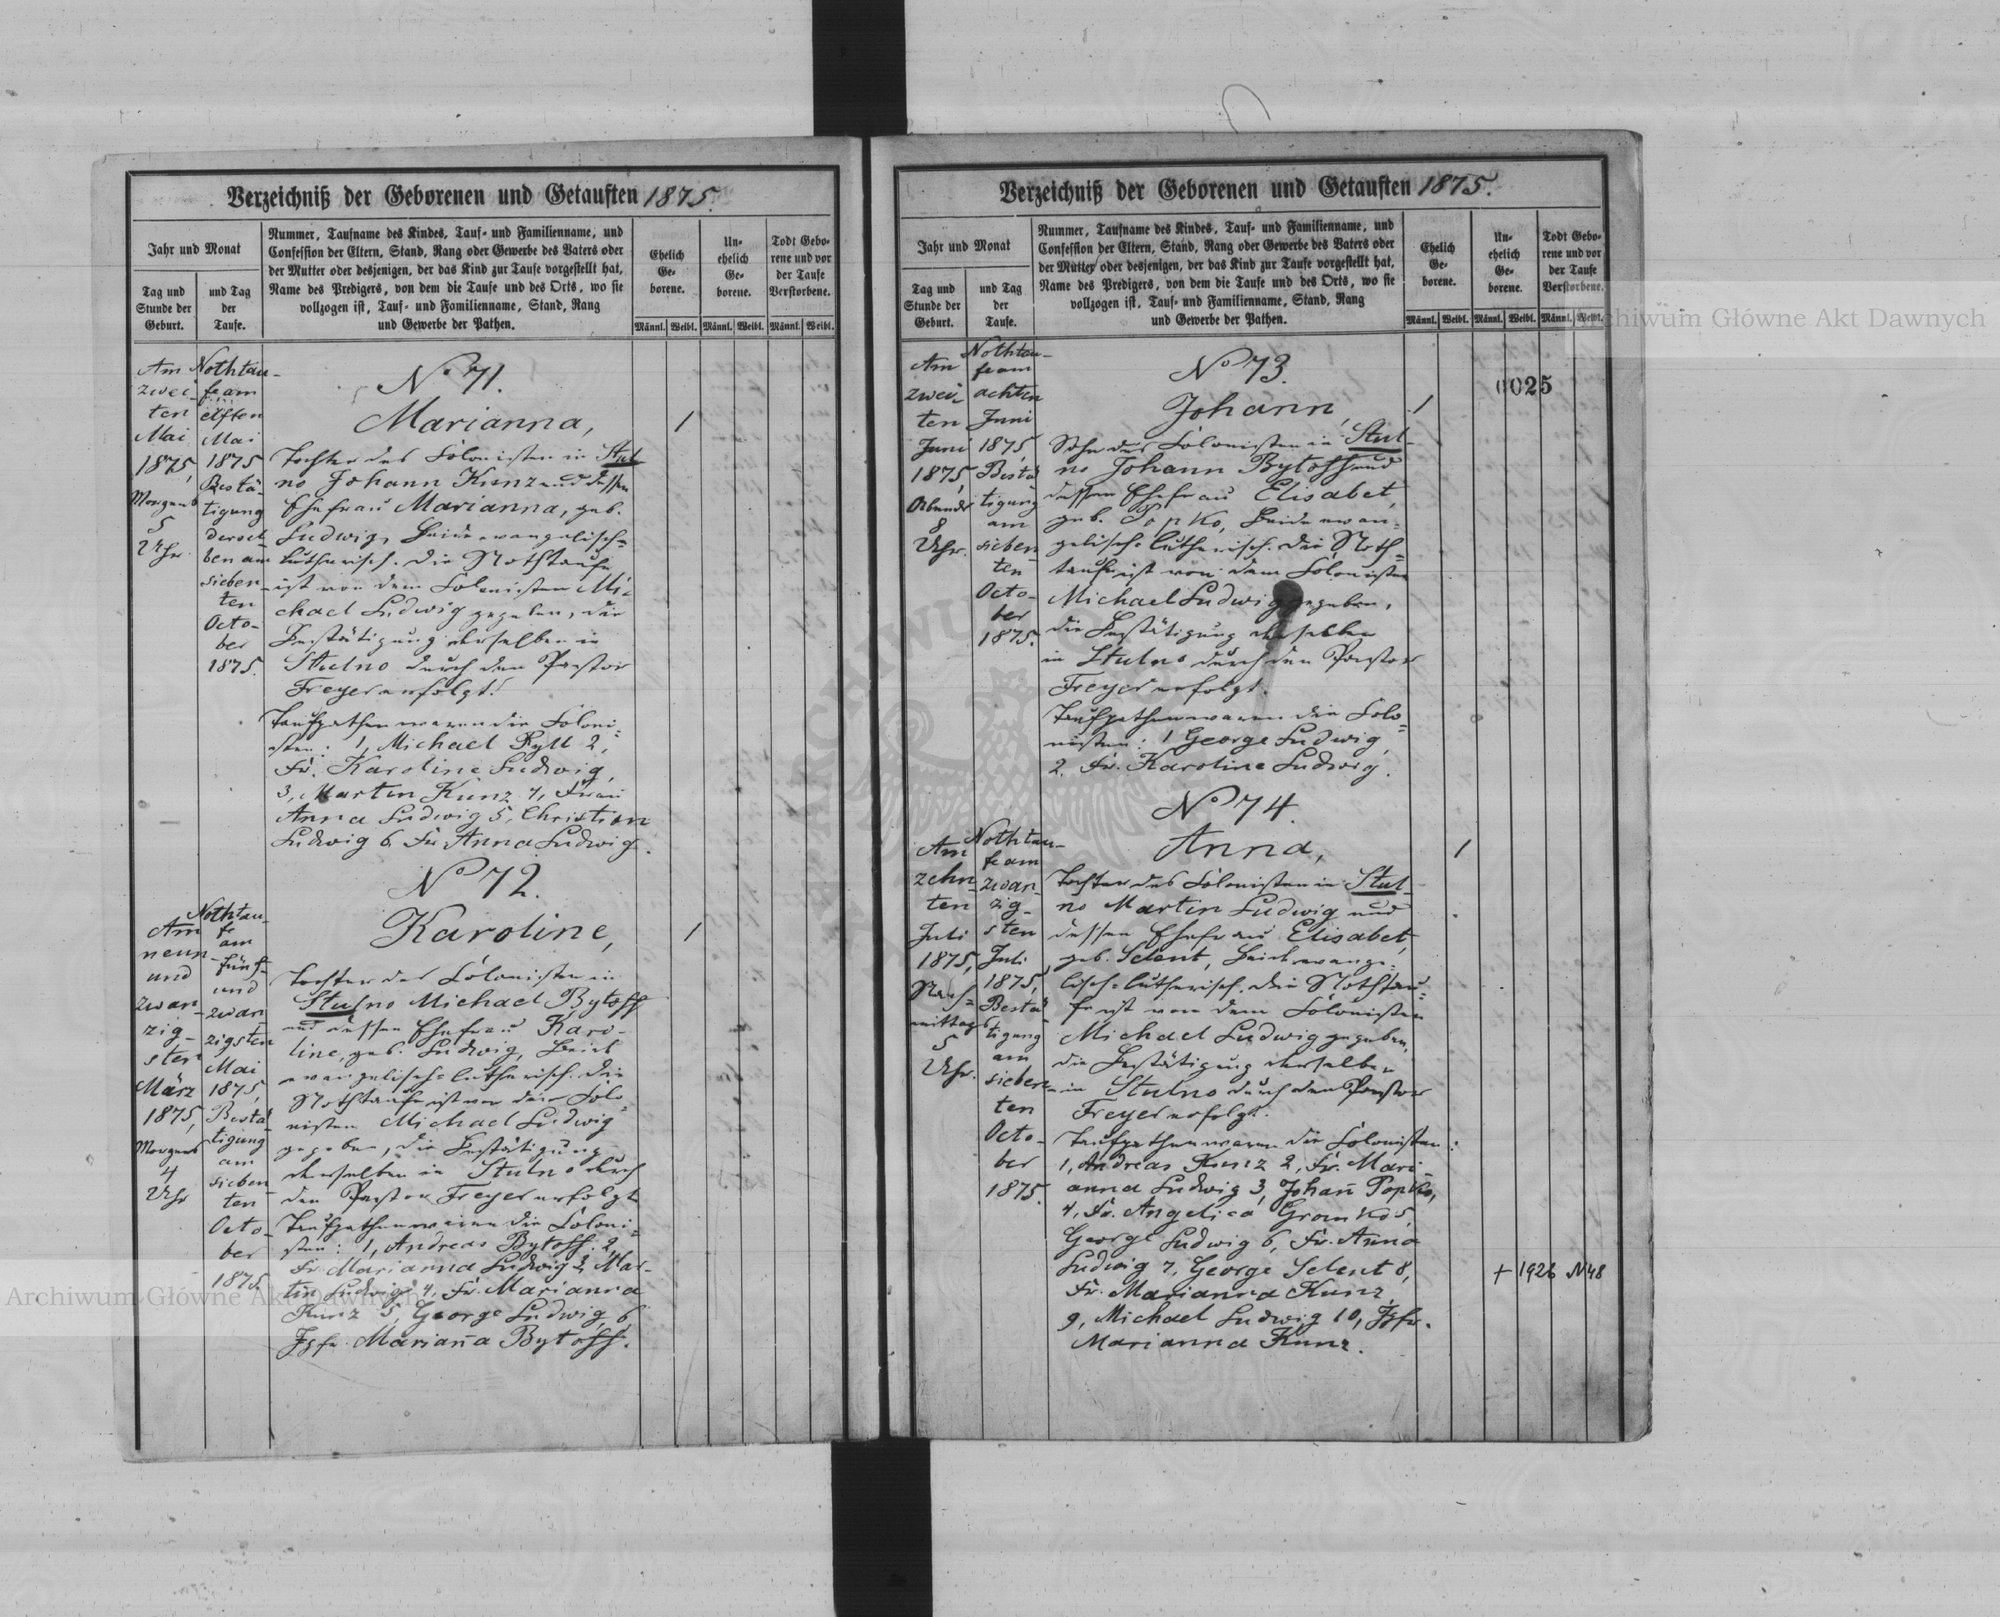 Verzeichniß der Geborenen und Getauften 1875.
Jahr und Monat
Tag und
Stunde der
Geburt.
und Tag
der
Taufe.
Nummer, Taufname des Kindes, Tauf- und Familienname, und
Confession der Eltern, Stand, Rang oder Gewerbe des Vaters oder
der Mutter oder desjenigen, der das Kind zur Taufe vorgestellt hat,
Name des Predigers, von dem die Taufe und des Orts, wo sie
vollzogen ist, Tauf- und Familienname, Stand, Rang
und Gewerbe der Pathen.
Ehelich
Ge-
borene.
Un-
ehelich
Ge-
borene.
Todt Gebo-
rene und vor
der Taufe
Verstorbene.
Männl. Weibl. Männl. Weibl. Männl. Weibl.
Am
zwei-
ten
Mai
1875,
Morgens
5
Uhr
Nothtau-
fe am
elften
Mai
1875
Bestä-
tigung
dersel-
ben am
sieben-
ten
Octo-
ber
1875.
No 71.
Marianna,
1
Tochter des Colonisten in Stul-
no Johann Kunz und dessen
Ehefrau Marianna, geb.
Ludwig, Beide evangelisch-
lutherisch. Die Nothtaufe
ist von dem Colonisten Mi-
chael Ludwig gegeben, die
Bestätigung derselben in
Stulno durch den Pastor
Freyer erfolgt.
Taufpathen waren die Coloni-
sten: 1, Michael Ryll 2,
Fr. Karoline Ludwig,
3, Martin Kunz 4, Frau
Anna Ludwig 5, Christian
Ludwig 6 Fr Anna Ludwig.
Am
neun-
und
zwan-
zig-
sten
März
1875,
Morgens
4
Uhr
Nothtau-
fe
am
fünf-
und
zwan
zigsten
Mai
1875,
Bestä-
tigung
am
sieben
ten
Octo-
ber
1875.
No 72.
Karoline,
1
Tochter des Colonisten in
Stulno Michael Bytoff
und dessen Ehefrau Karo-
line, geb. Ludwig, Beide
evangelisch-lutherisch. Die
Nothtaufe ist von dem Colo-
nisten Michael Ludwig
gegeben, die Bestätigung
derselben in Stulno durch
den Pastor Freyer erfolgt
Taufpathen waren die Coloni-
sten: 1, Andreas Bytoff. 2,
Fr. Marianna Ludwig 3, Mar-
tin Ludwig 4, Fr. Marianna
Kunz 5, George Ludwig, 6,
Jgfr. Mariana Bytoff.
Verzeichniß der Geborenen und Getauften 1875.
Jahr und Monat
Tag und
Stunde der
Geburt.
und Tag
der
Taufe.
Nummer, Taufname des Kindes, Tauf- und Familienname, und
Confession der Eltern, Stand, Rang oder Gewerbe des Vaters oder
der Mutter oder desjenigen, der das Kind zur Taufe vorgestellt hat,
Name des Predigers, von dem die Taufe und des Orts, wo sie
vollzogen ist, Tauf- und Familienname, Stand, Rang
und Gewerbe der Pathen.
Ehelich
Ge-
borene.
Un-
ehelich
Ge-
borene.
Todt Gebo-
rene und vor
der Taufe
Verstorbene.
Männl. Weibl. Männl. Weibl. Männl. Weibl.
0025
Am
zwei-
ten
Juni
1875,
Abends
8
Uhr.
Nothtau-
fe am
achten
Juni
1875,
Bestä
tigung
am
sieben-
ten
Octo-
ber
1875.
No 73.
Johann,
1
Sohn des Colonisten in Stul-
no Johann Bytoff und
dessen Ehefrau Elisabet,
geb. Popko, Beide evan-
gelisch-lutherisch. Die Noth-
taufe ist von dem Colonisten
Michael Ludwig gegeben,
die Bestätigung derselben
in Stulno durch den Pastor
Freyer erfolgt.
Taufpathen waren die Colo-
nisten: 1 George Ludwig,
2. Fr. Karoline Ludwig.
Am
zehn-
ten
Juli
1875,
Nach-
mittags
5
Uhr.
Nothtau-
fe am
zwan-
zig-
sten
Juli
1875,
Bestä-
tigung
am
sieben-
ten
Octo-
ber
1875.
No 74.
Anna,
1
Tochter des Colonisten in Stul-
no Martin Ludwig und
dessen Ehefrau Elisabet,
geb. Selent, Beide evange-
lisch-lutherisch. Die Nothtau-
fe ist von dem Colonisten
Michael Ludwig gegeben,
die Bestätigung derselben
in Stulno durch den Pastor
Freyer erfolgt.
Taufpathen waren die Colonisten:
1, Andreas Kunz 2, Fr. Mari-
anna Ludwig 3, Johan Popko,
4, Fr. Angelica Gromko 5,
George Ludwig 6, Fr. Anna
Ludwig 7, George Selent 8,
Fr. Marianna Kunz
9, Michael Ludwig 10, Jgfr.
Marianna Kunz.
+ 1926 N 48
Archiwum Główne Akt Dawnych
Archiwum Główne Akt Dawnych